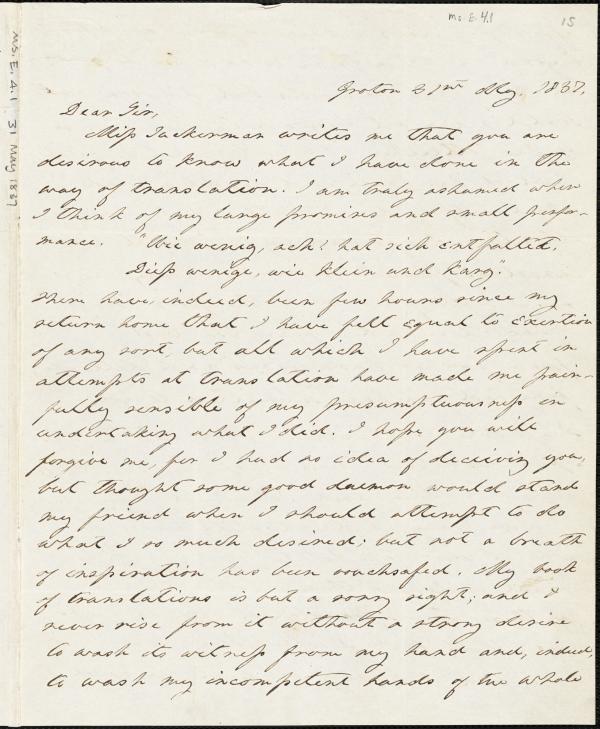 Ms. E. 4.1
15
Ms. E. 4. 1 31 May 1837
Groton 31st May. 1837.
Dear Sir,
Miss Tuckerman writes me that you are
desirous to know what I have done in the
way of translation. I am truly ashamed when
I think of my large promises and small perfor-
mance. "Wie wenig, ach! hat sich entfaltet,
Diess wenige, wie klein und karg".
There have, indeed, been few hours since my
return home that I have felt equal to exertion
of any sort, but all which I have spent in
attempts at translation have made me pain-
fully sensible of my presumptuousness in
undertaking what I did. I hope you will
forgive me, for I had no idea of deceiving you,
but thought some good daemon would stand
my friend when I should attempt to do
what I so much desired; but not a breath
of inspiration has been vouchsafed. My book
of translations is but a sorry sight; and I
never rise from it without a strong desire
to wash its witness from my hand and, indeed,
to wash my incompetent hands of the whole